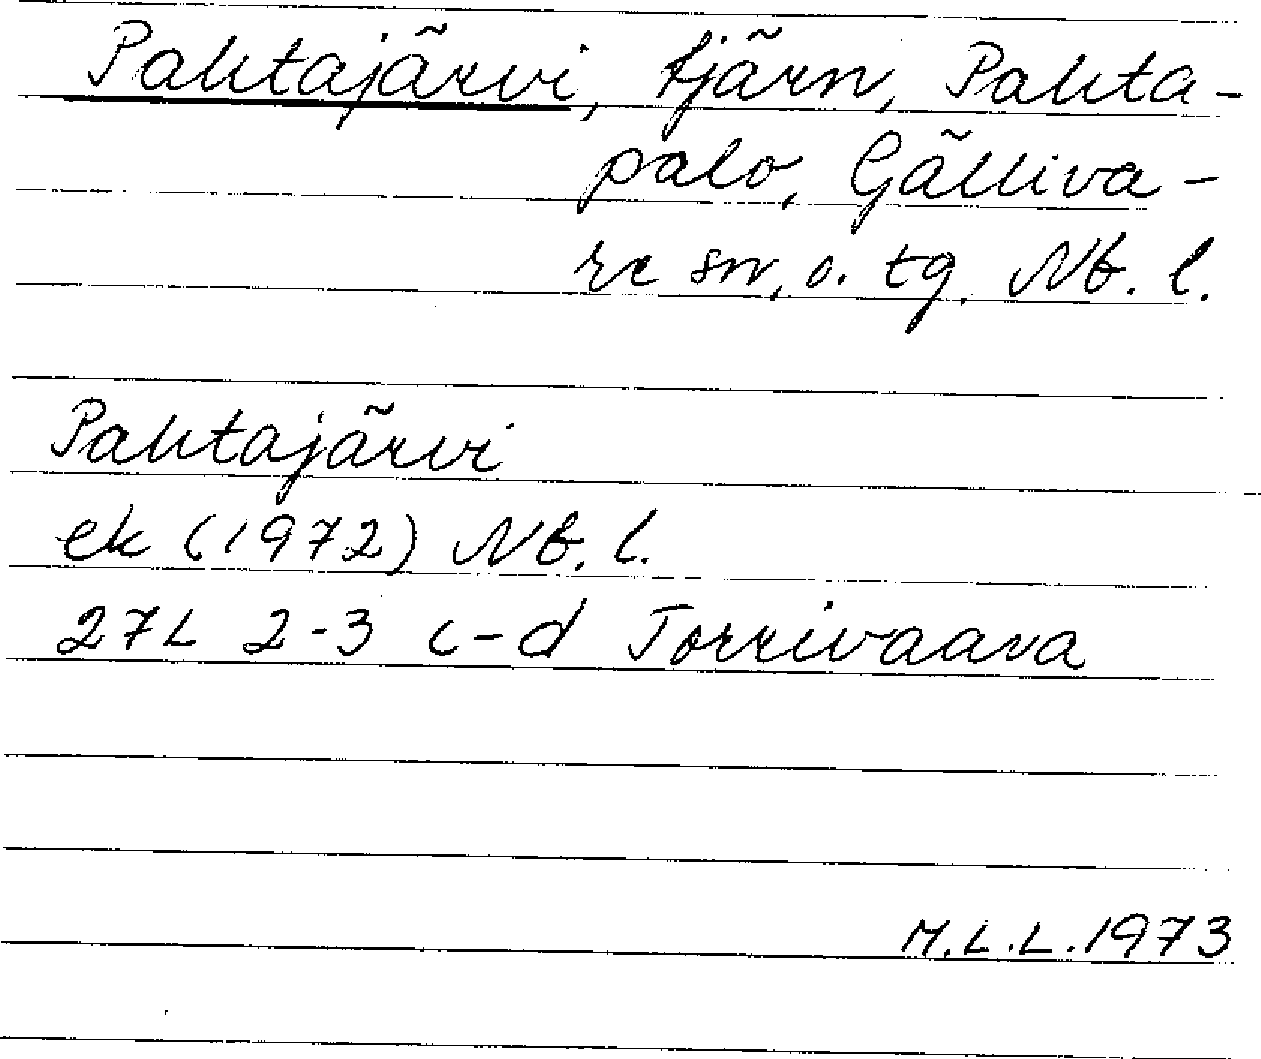 Pahtajärvi, tjärn, Pahta-
palo, Gälliva-
re sn, o. tg, Nb. l.
Pahtajärvi
ek (1972) Nb. l.
27L 2-3 c-d Torrivaara
M.L.L. 1973